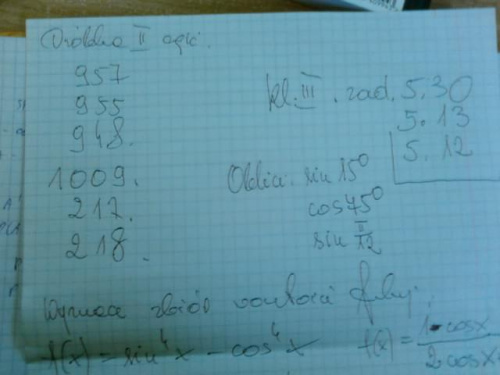 Wróblna II część.
957
955
948.
1009.
217.
218.
kl. III. zad. 5.30
5.13
5.12
Oblicz. sin 15°
cos 75°
sin π/12
Wyznacz zbiór wartości funkcji.
f(x) = sin⁴x - cos⁴x f(x) = 1 - cosx / 2 cosx